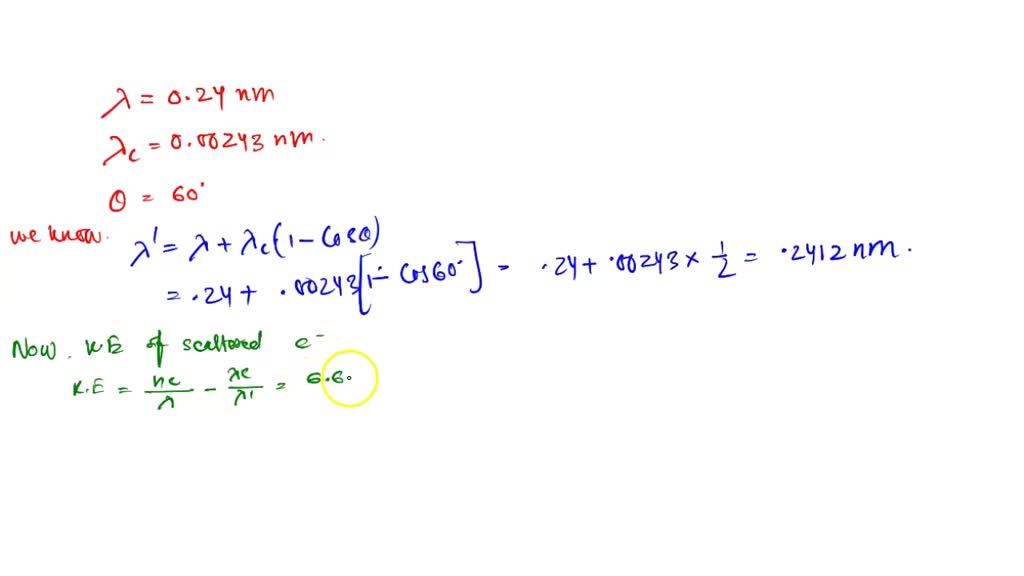 λ = 0.24 nm
λc = 0.00243 nm.
θ = 60°
we know. λ' = λ + λc(1 - Cosθ)
= .24 + .00243[1 - Cos60°] = .24 + .00243 × 1/2 = .2412 nm.
Now, KE of scattered e⁻
K.E = hc/λ - hc/λ' = 6.6